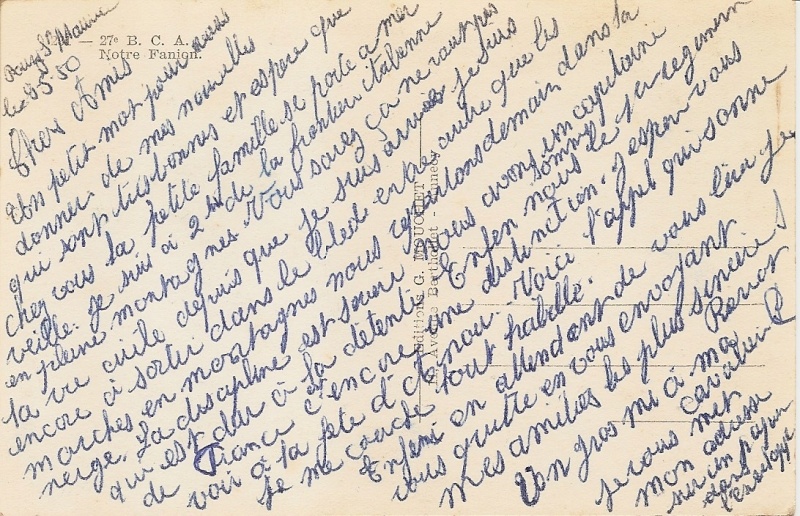 27e B. C. A.
Notre Fanion.
Editions G.
Av. Berthollet - Annecy
Bourg St Maurice
le 8 5 50
Chers Amis
Un petit mot pour vous
donner de mes nouvelles
qui sont très bonnes et espère que
chez vous la petite famille se porte a mer
veille. Je suis à 2 km de la frontière italienne
en pleine montagnes. Vous savez ça ne vaut pas
la vie civile depuis que je suis arrivée je suis
encore à sortir dans le bled entre autre que les
marches en montagnes nous repartons demain dans la
neige. La discipline est sévère nous avons un capitaine
qui est dur à la détente. Enfen nous sommes le 1er regiment
de France c'est encore une distinction. J'espère vous
voir à la fête d' Voice l'appel qui sonne
Je me couche tout habillé.
Enfen en attendant de vous lire je
vous quitte en vous envoyant
mes amitiés les plus sincère
Un gros mi à ma
cavalière
Je vous met
mon adresse
sur un papier
dans
l'enveloppe